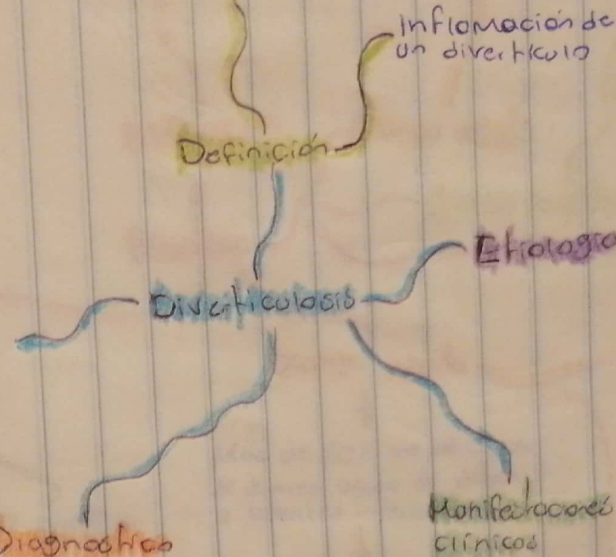 Inflamación de
un divertículo
Definición
Etiologia
Diverticulosis
Manifestaciones
clínicas
Diagnostico